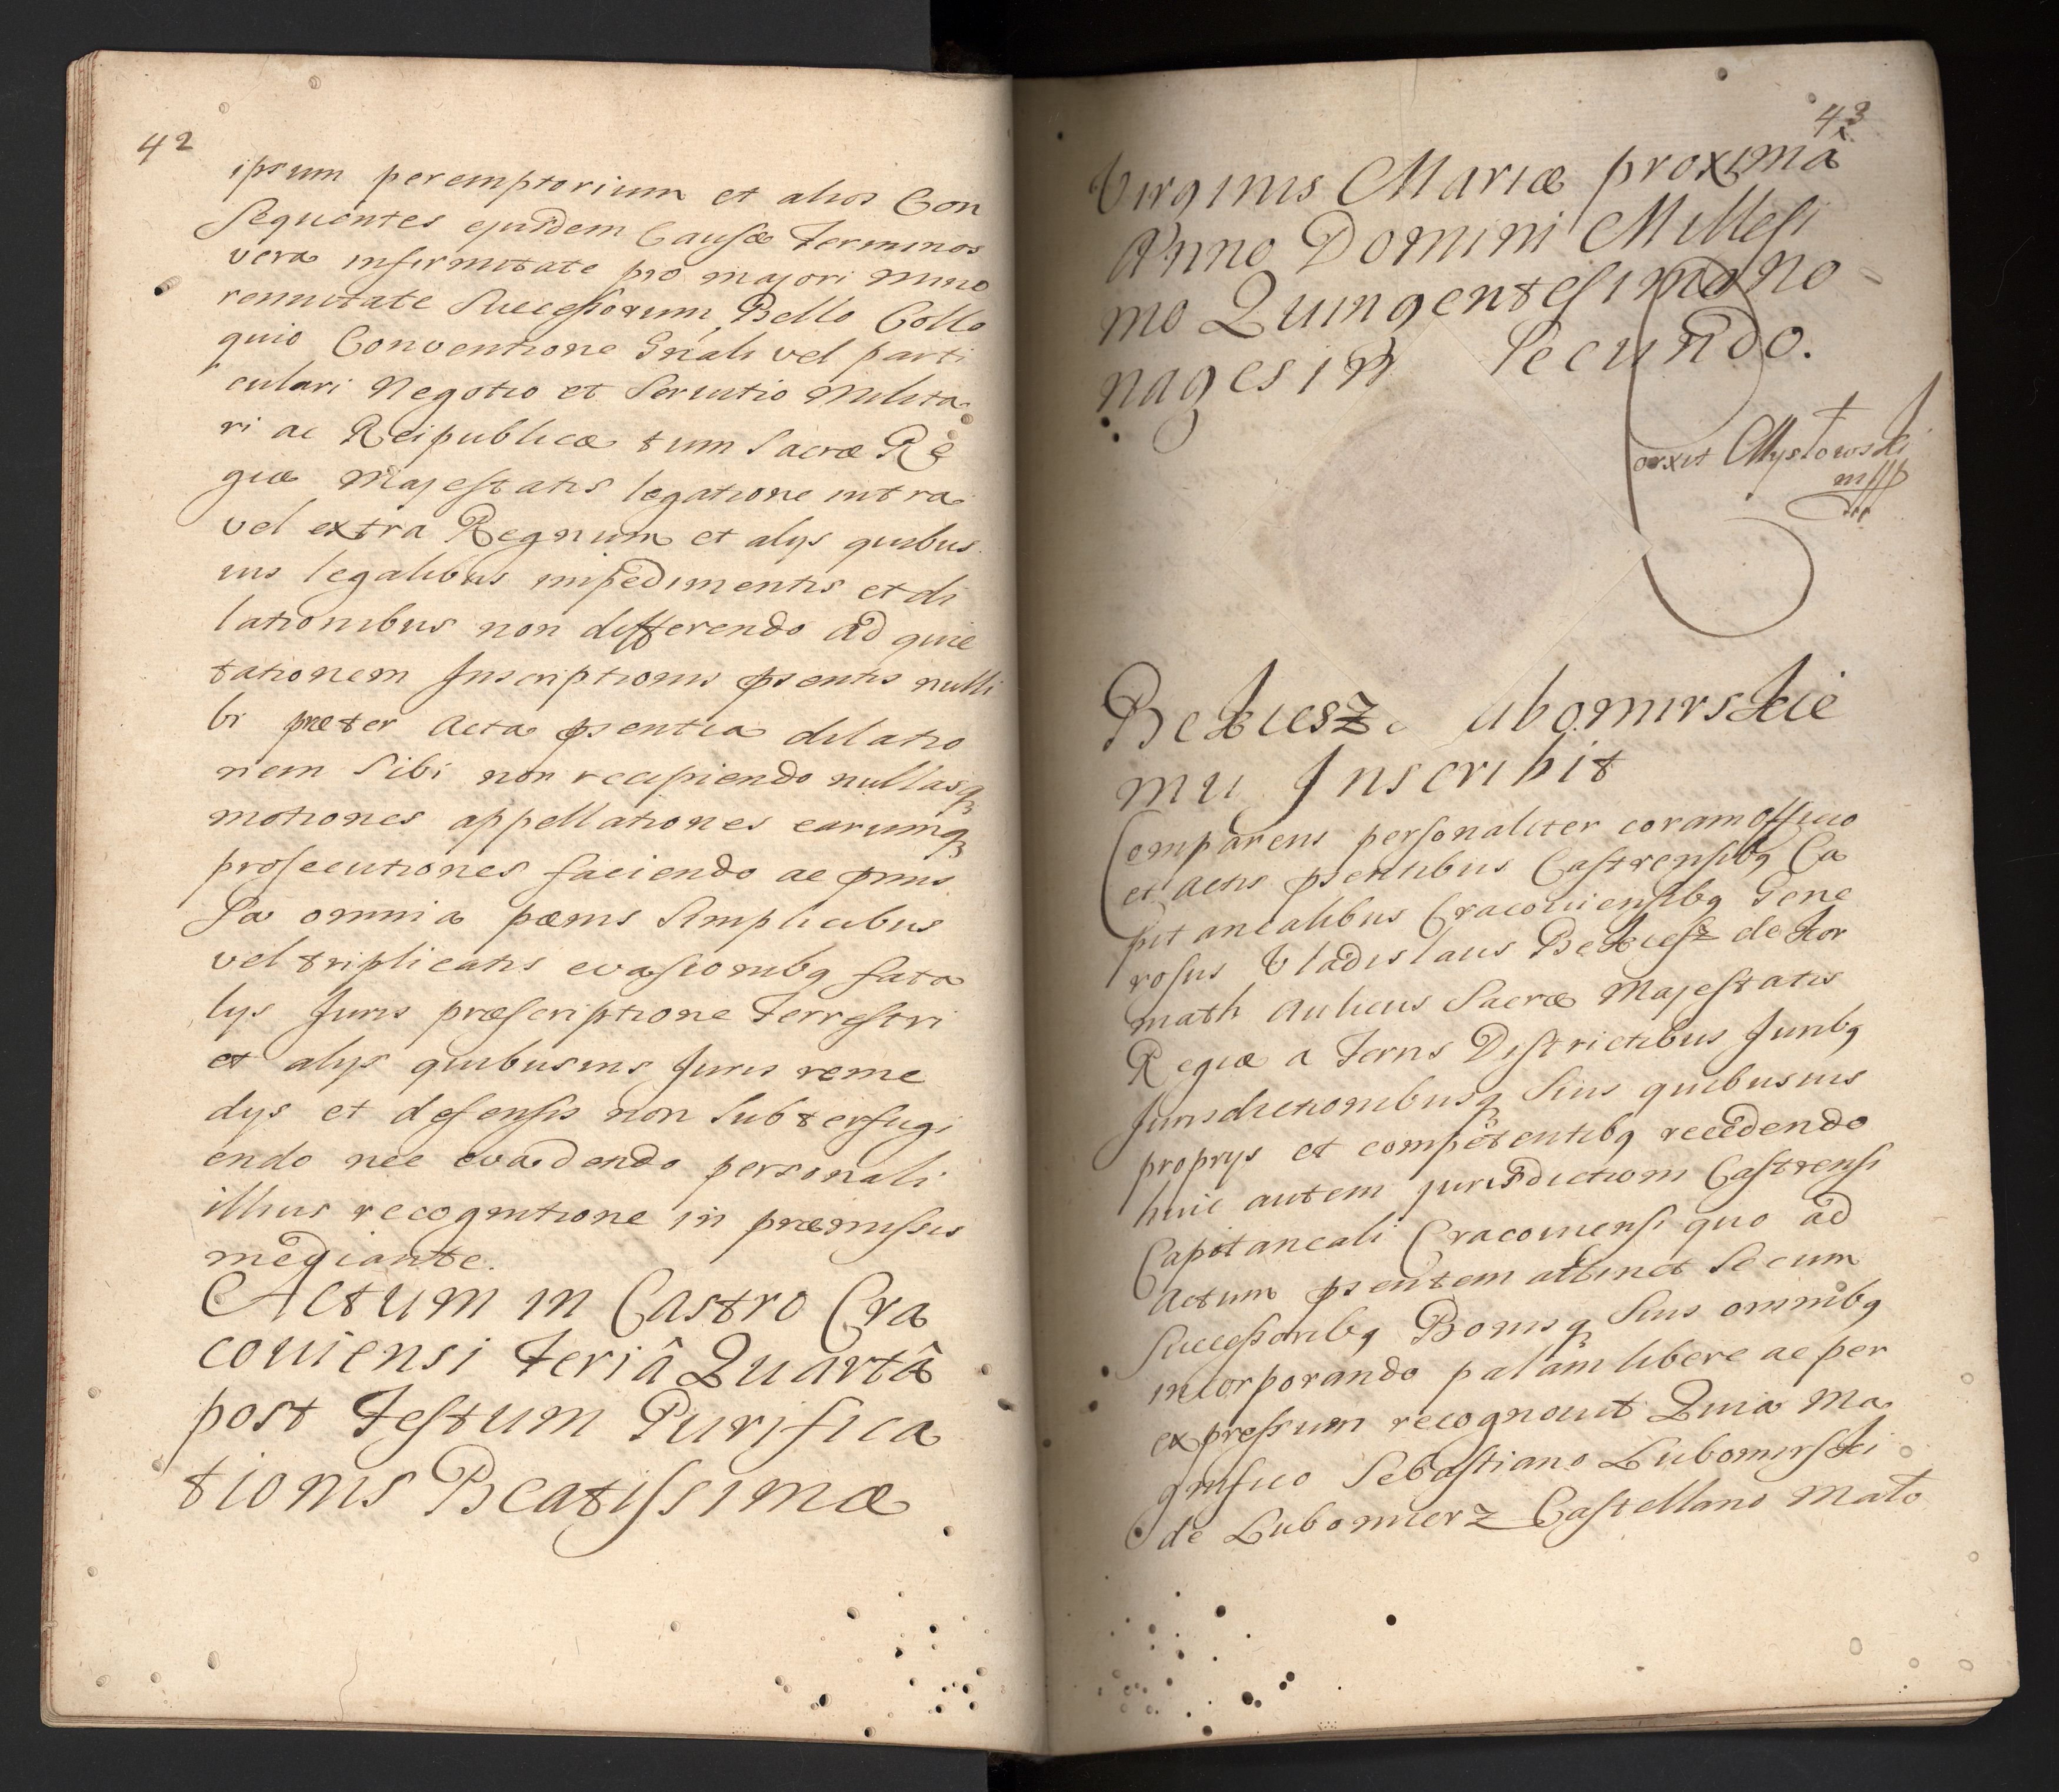 42
ipsum peremptorium et alios Con
sequentes ejusdem Causæ Terminos
vera infirmitate pro majori mino
rennitate Successorum, Bello Collo
quio Conventione Gnali vel parti
culari Negotio et Servitio Milita
ri ac Reipublicæ tum Sacræ Re
giæ Majestatis legatione intra
vel extra Regnum et alijs quibus
vis legalibus impedimentis et di
lationibus non differendo ad quie
tationem Inscriptionis pſentis nulli
bi præter Acta pſentia dilatio
nem Sibi non recipiendo nullasq
motiones appellationes earumq
prosecutiones faciendo ac pmis
Sa omnia pœnis Simplicibus
vel triplicatis evasionibq fata
lys Juris præscriptione Terrestri
et alijs quibusvis Juris reme
dys et defensis non Subterfugi
endo nec evadendo personali
illius recognitione in præmissis
mediante.
Actum in Castro Cra
coviensi Feriâ Quartâ
post Festum Purifica
tionis Beatissimæ
43
Virginis Mariæ proximâ
Anno Domini Millesi
mo Quingentesimo No
nagesim Secundo.
Mysłowski
mpp
Bekiesz ubomirskie
mu Inscribit
Comparens personaliter coram Officio
et Actis pſentibus Castrensibq Ca
pitanealibus Cracoviensibq Gene
rosus Vladislaus Bekiesz de Kor
math Aulicus Sacræ Majestatis
Regiæ a Terris Districtibus Juribq
Jurisdictionibusq Suis quibusvis
proprys et competentibq recedendo
huic autem jurisdictioni Castrensi
Capitaneali Cracoviensi quo ad
Actum pſentem attinet Se cum
Successoribq Bonisq Suis omnibq
incorporando palam libere ac per
expressum recognovit Quia Ma
gnifico Sebastiano Lubomirski
de Lubomierz Castellano Mało